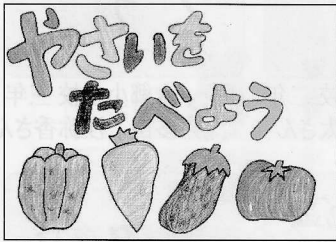 やさいを
たべよう